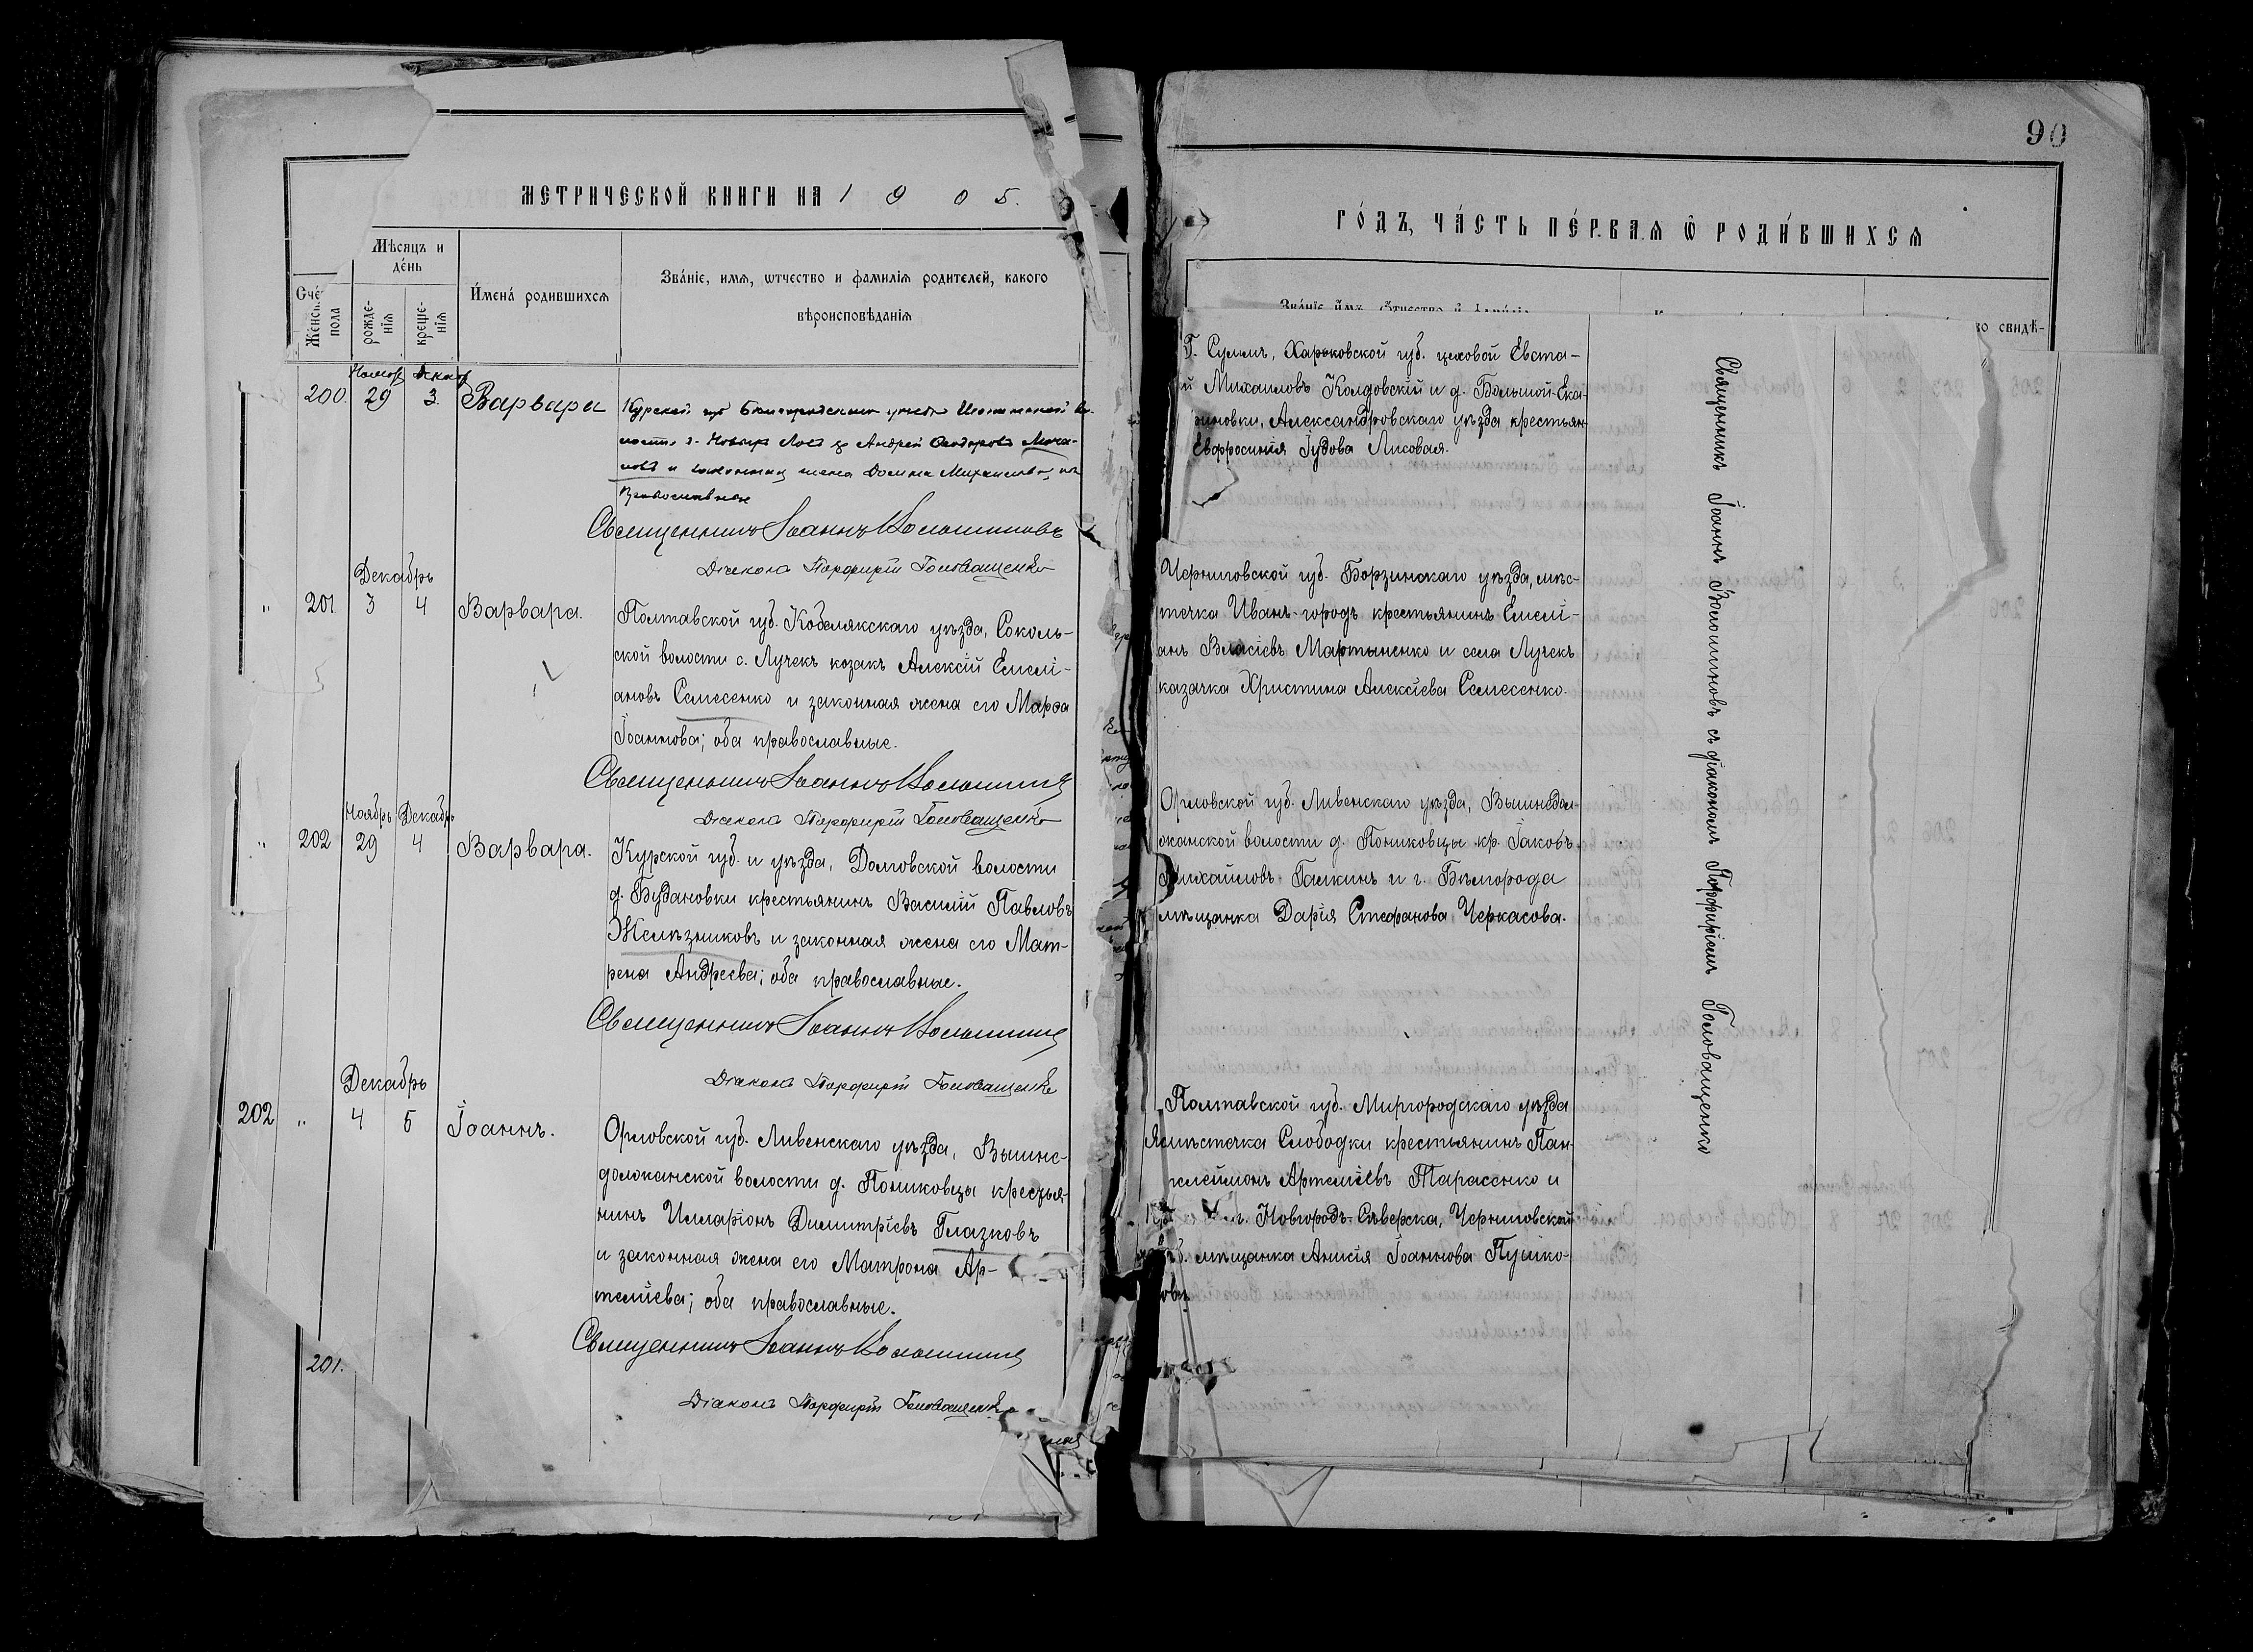 МЕТРИЧЕСКОЙ КНИГИ НА 1905.
Мѣсяцъ и
де́нь
Же́нска
пола
рожде-
нія
креще-
нія
И҆мена̀ родившихсѧ
Зва́ніе, имѧ, ѿтчество и фамиліѧ родителей, какого
вѣроисповѣданіѧ
200. 29 3. Варвара
Курской губ
Андрей Ѳеодоровъ
и законная жена Михаилова,
Православные
Священникъ Іоаннъ Волошиновъ
Діаконъ Порфирій Головащенко
Декабрь
" 201 3 4 Варвара.
Полтавской губ. Кобелякскаго уѣзда, Соколь-
ской волости с. Лучекъ козакъ Алексій Емелі-
ановъ Семесенко и законная жена его Марѳа
Іоаннова; оба православные.
Священникъ Іоаннъ Волошинов
Діаконъ Порфирій Головащенко
Ноябрь Декабрь
" 202 29 4 Варвара.
Курской губ. и уѣзда, Долговской волости
д. Будановки крестьянинъ Василій Павловъ
Желѣзниковъ и законная жена его Мат-
рена Андреева; оба православные.
Священникъ Іоаннъ Волошинов
Діаконъ Порфирій Головащенко
Декабрь
202 " 4 5 Іоаннъ.
Орловской губ. Ливенскаго уѣзда, Вышне-
должанской волости д. Пониковцы крестья-
нинъ Илларіонъ Димитріевъ Глазковъ
и законная жена его Матрона Ар-
теміева; оба православные.
Священникъ Іоаннъ Волошинов
Діаконъ Порфирій Головащенко
201.
90
ГО́ДЪ, ЧА́СТЬ ПЕ́РВАѦ Ѡ҆ РОДИ́ВШИХСѦ
Зва́ніе
свидѣ-
Г. Сумъ, Харьковской губ. цеховой Евста-
й Михаиловъ Колдовскій и д. Большой-Ека-
риновки, Александровскаго уѣзда крестьян
Евфросинія Іудова Лисовая.
Черниговской губ. Борзинскаго уѣзда, мѣс-
течка Иванъ-городъ крестьянинъ Емелі-
анъ Власіевъ Мартыненко и села Лучекъ
казачка Христина Алексіева Семесенко.
Орловской губ. Ливенскаго уѣзда, Вышнедол-
жанской волости д. Пониковцы кр. Іаковъ
Михайловъ Галкинъ и г. Бѣлгорода
мѣщанка Дарія Стефанова Черкасова.
Полтавской губ. Миргородскаго уѣзда
мѣстечка Слободки крестьянинъ Пан-
телеимонъ Артеміевъ Тарасенко и
г. Новгородъ-Сѣверска, Черниговской
губ. мѣщанка Анисія Іоаннова Пушко-
ова.
Священникъ Іоаннъ Волошиновъ съ діакономъ Порфиріемъ Головащенко